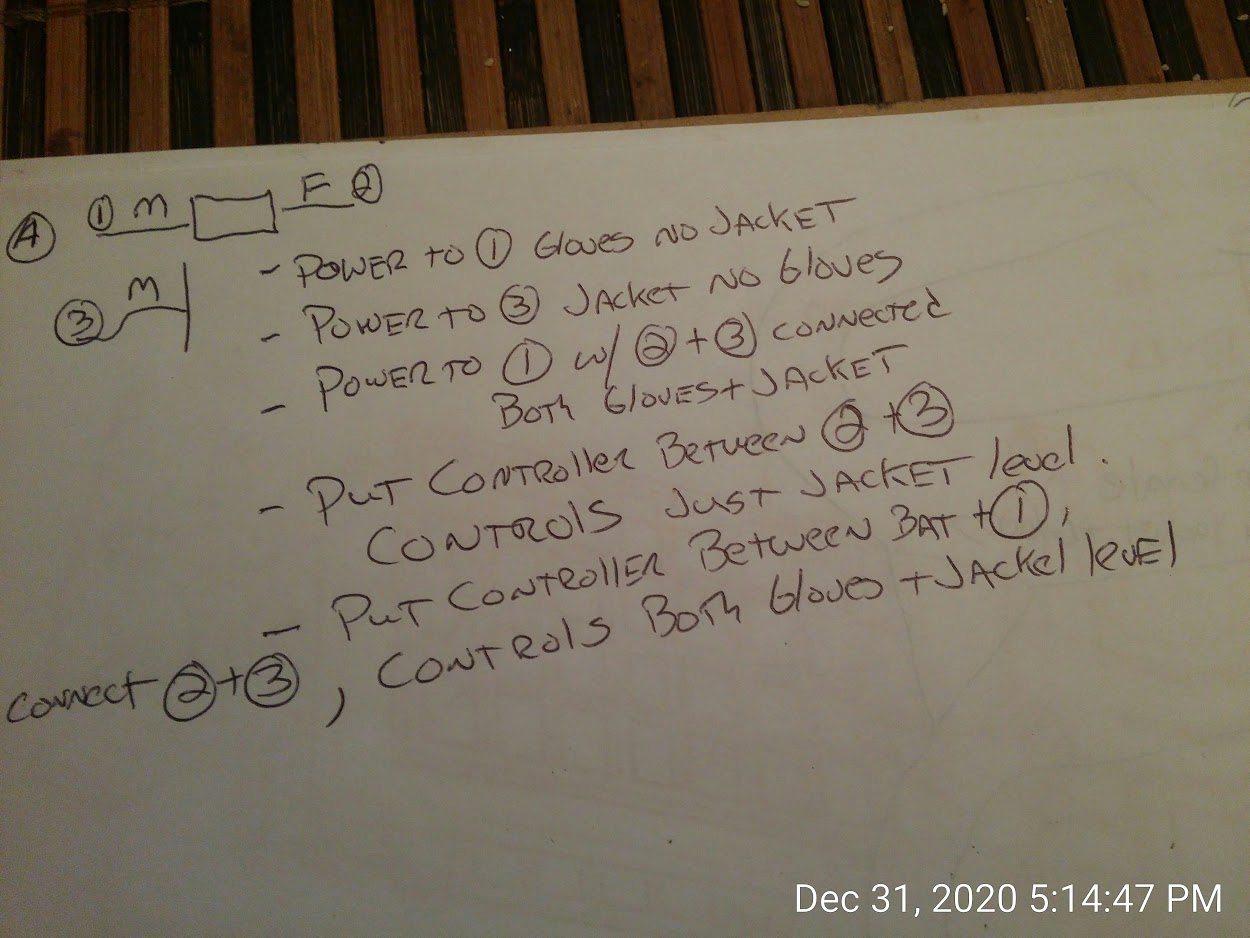 Ⓐ ① M F ②
③ M
- POWER TO ① Gloves NO JACKET
- POWER TO ③ JACKET NO Gloves
- POWER TO ① W/ ② + ③ CONNECTED
BOTH GLOVES + JACKET
- PUT CONTROLLER BETWEEN ② + ③
CONTROLS JUST JACKET level.
- PUT CONTROLLER BETWEEN BAT + ①,
connect ② + ③, CONTROLS BOTH Gloves + JACKET level
Dec 31, 2020 5:14:47 PM